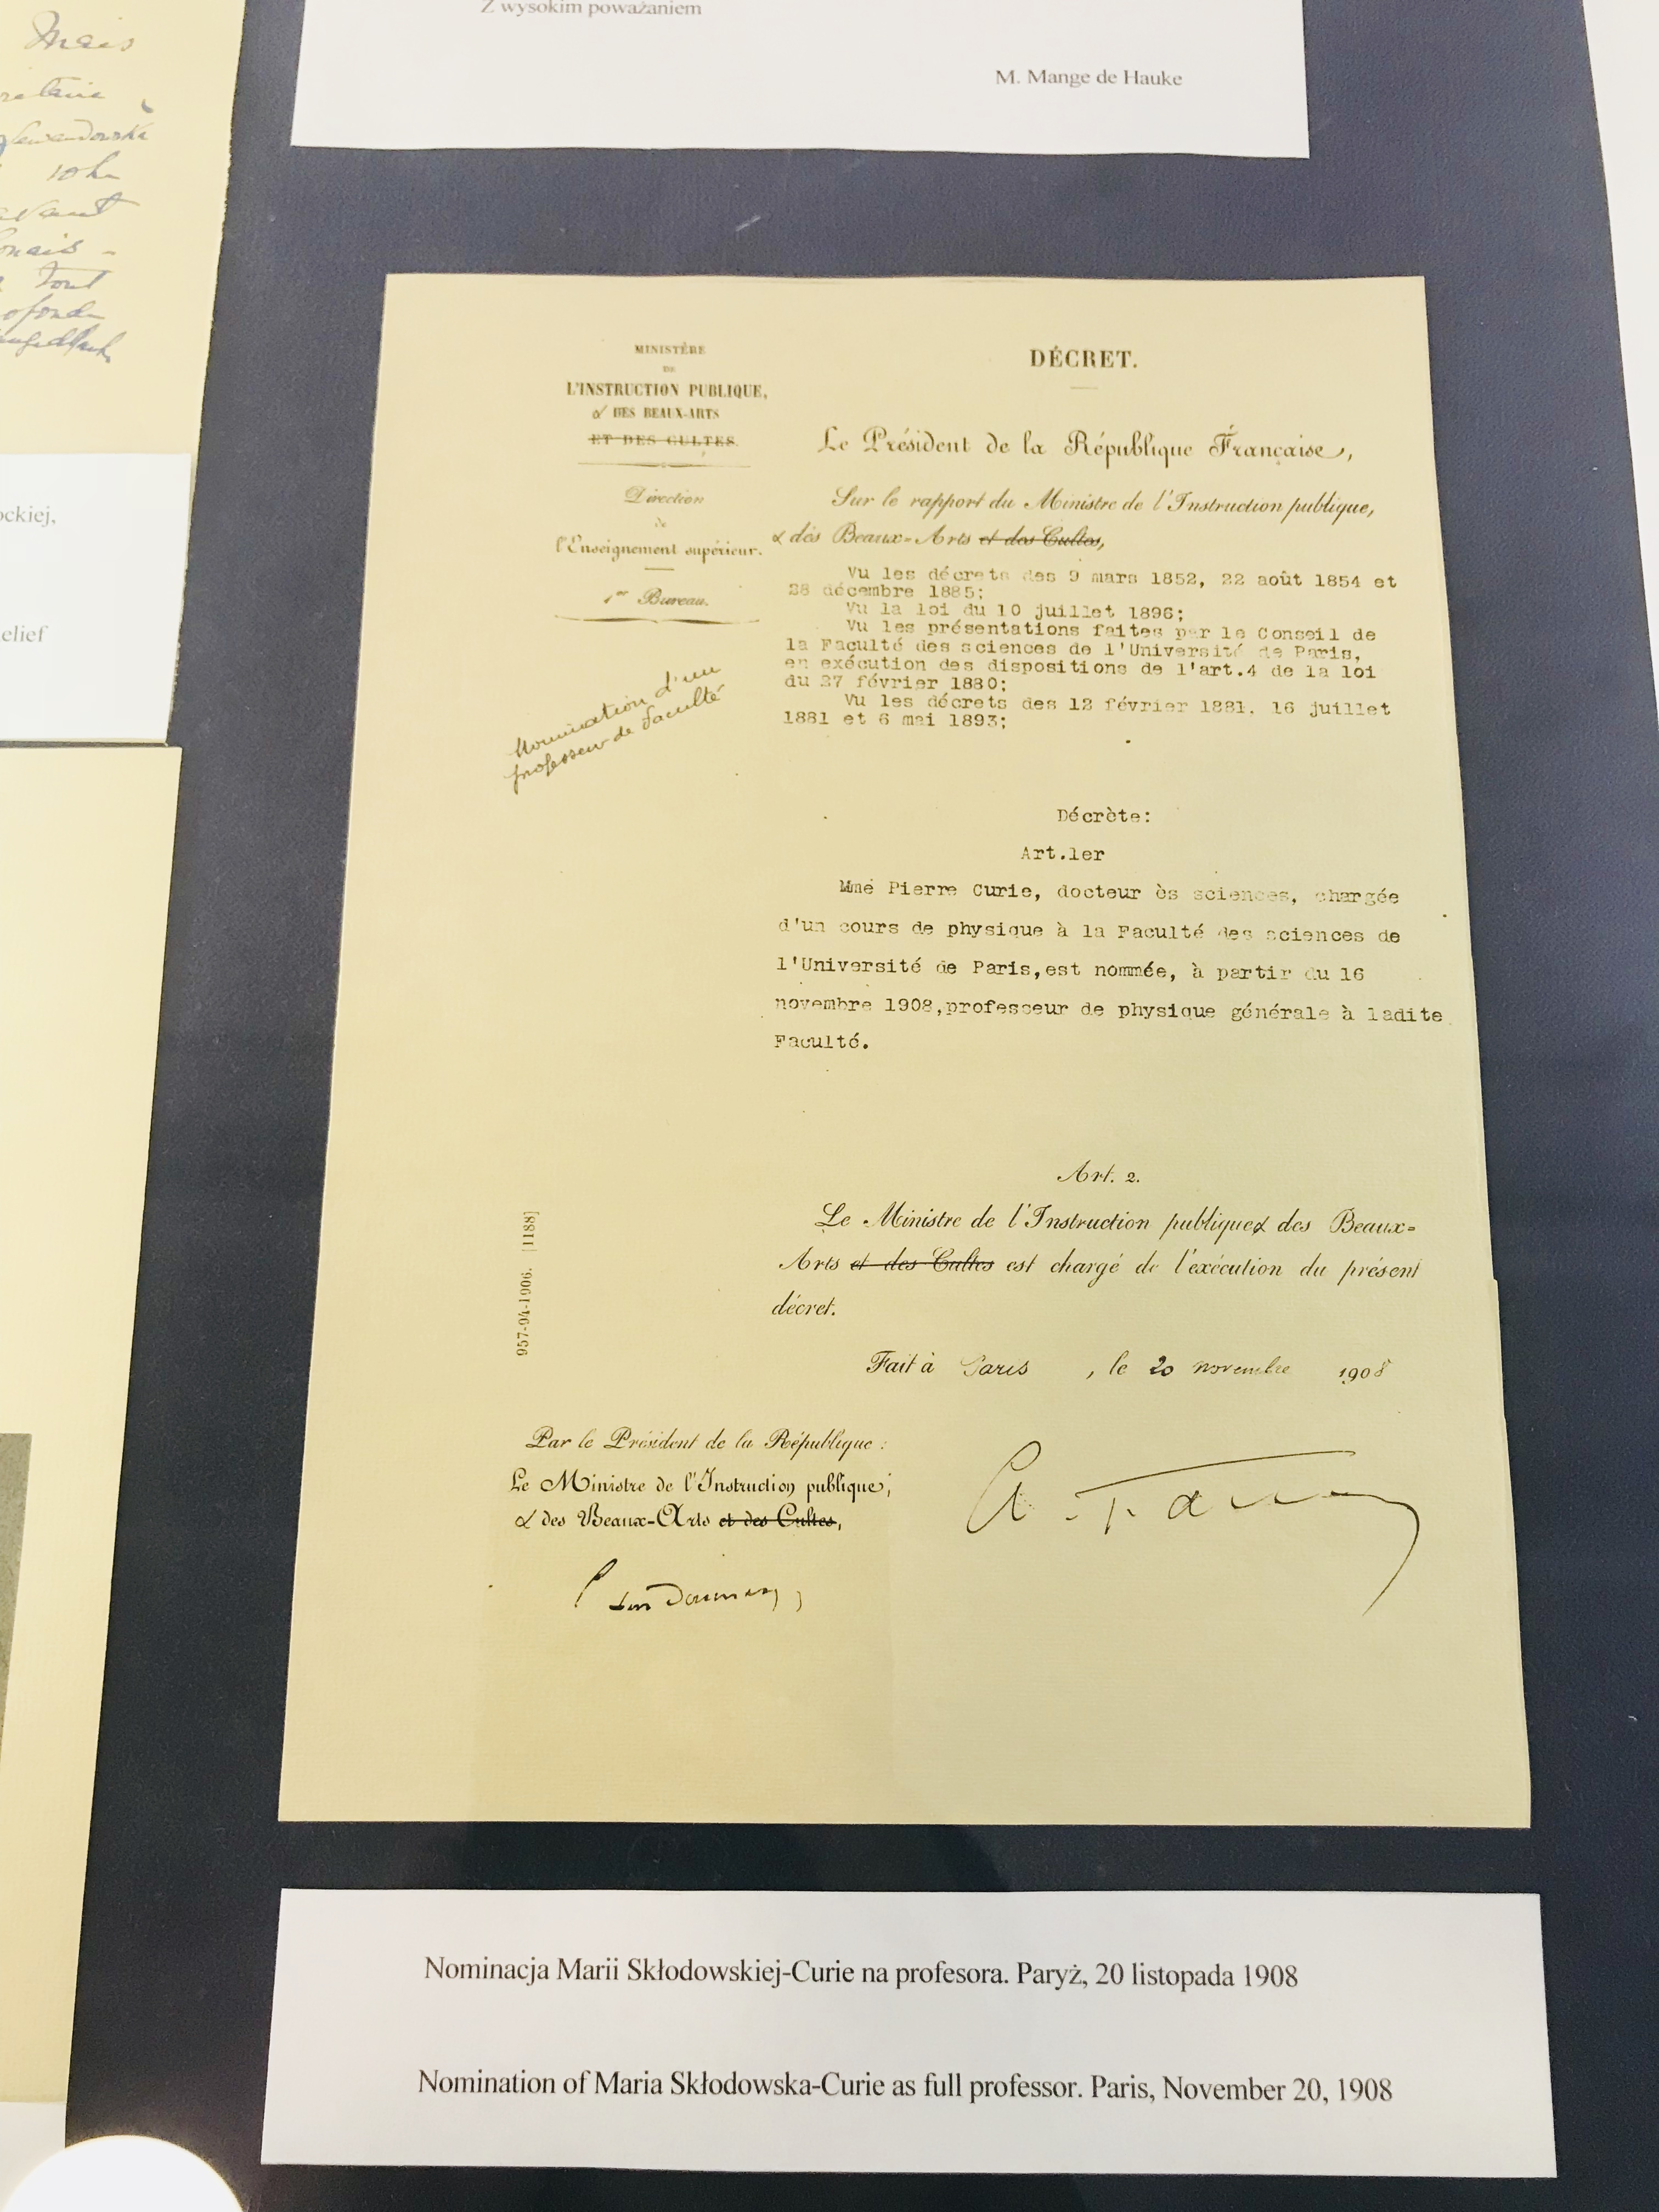 Mais
10h
Tout
ockiej,
elief
Z wysokim poważaniem
M. Mange de Hauke
MINISTÈRE
DE
L'INSTRUCTION PUBLIQUE,
& DES BEAUX-ARTS
ET DES CULTES.
Direction
de
l'Enseignement supérieur.
1er Bureau.
Nomination d'un
professeur de Faculté
DÉCRET.
Le Président de la République Française,
Sur le rapport du Ministre de l'Instruction publique,
& des Beaux-Arts et des Cultes,
Vu les décrets des 9 mars 1852, 22 août 1854 et
28 décembre 1885;
Vu la loi du 10 juillet 1896;
Vu les présentations faites par le Conseil de
la Faculté des sciences de l'Université de Paris,
en exécution des dispositions de l'art.4 de la loi
du 27 février 1880;
Vu les décrets des 12 février 1881, 16 juillet
1881 et 6 mai 1893;
Décrète:
Art.1er
Mme Pierre Curie, docteur ès sciences, chargée
d'un cours de physique à la Faculté des sciences de
l'Université de Paris,est nommée, à partir du 16
novembre 1908,professeur de physique générale à ladite
Faculté.
Art. 2.
Le Ministre de l'Instruction publique & des Beaux-
Arts et des Cultes est chargé de l'exécution du présent
décret.
Fait à Paris , le 20 novembre 1908
957-94-1906. [1188]
Par le Président de la République :
Le Ministre de l'Instruction publique,
& des Beaux-Arts et des Cultes,
Nominacja Marii Skłodowskiej-Curie na profesora. Paryż, 20 listopada 1908
Nomination of Maria Skłodowska-Curie as full professor. Paris, November 20, 1908